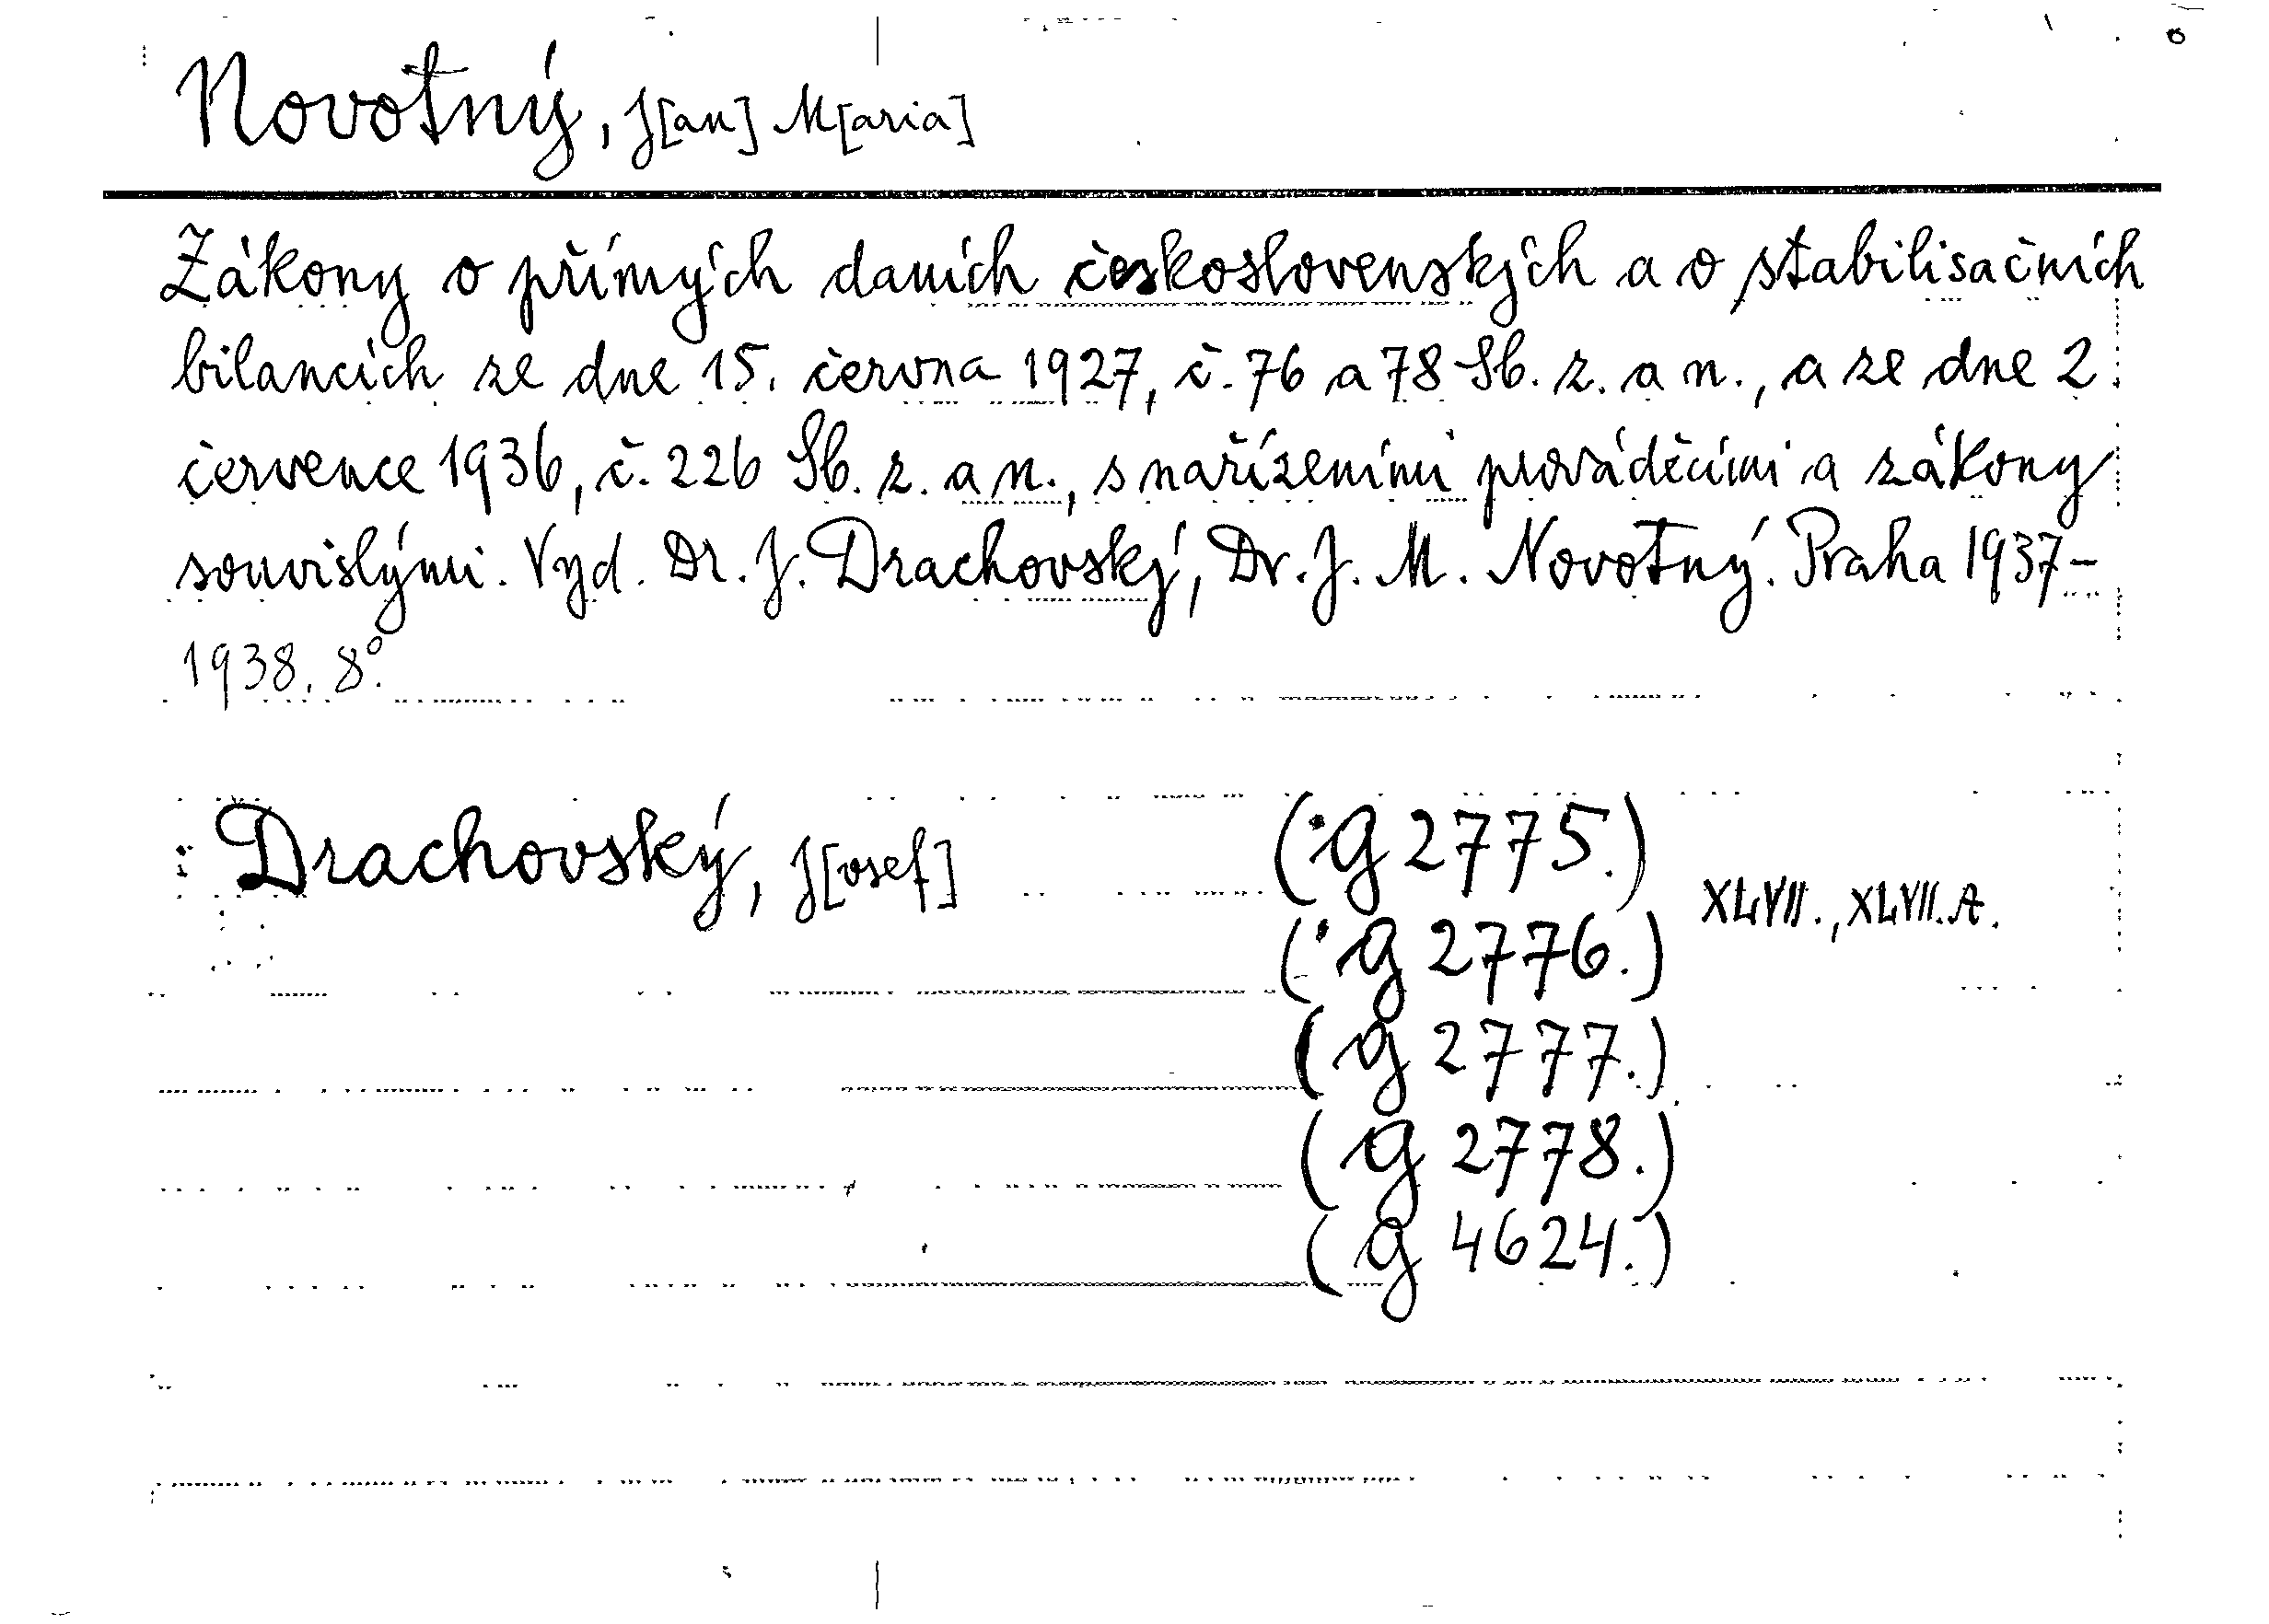 Novotný, J[an] M[aria]
Zákony o přímých daních československých a o stabilisačních
bilancích ze dne 15. června 1927, č. 76 a 78 Sb. z. a n., a ze dne 2.
července 1936, č. 226 Sb. z. a n., s nařízeními prováděcími a zákony
souvislými. Vyd. Dr. J. Drachovský, Dr. J. M. Novotný. Praha 1937–
1938. 8°.
Drachovský, J[osef]
(g 2775.)
XLVII., XLVII.A.
(g 2776.)
(g 2777.)
(g 2778.)
(g 4624.)